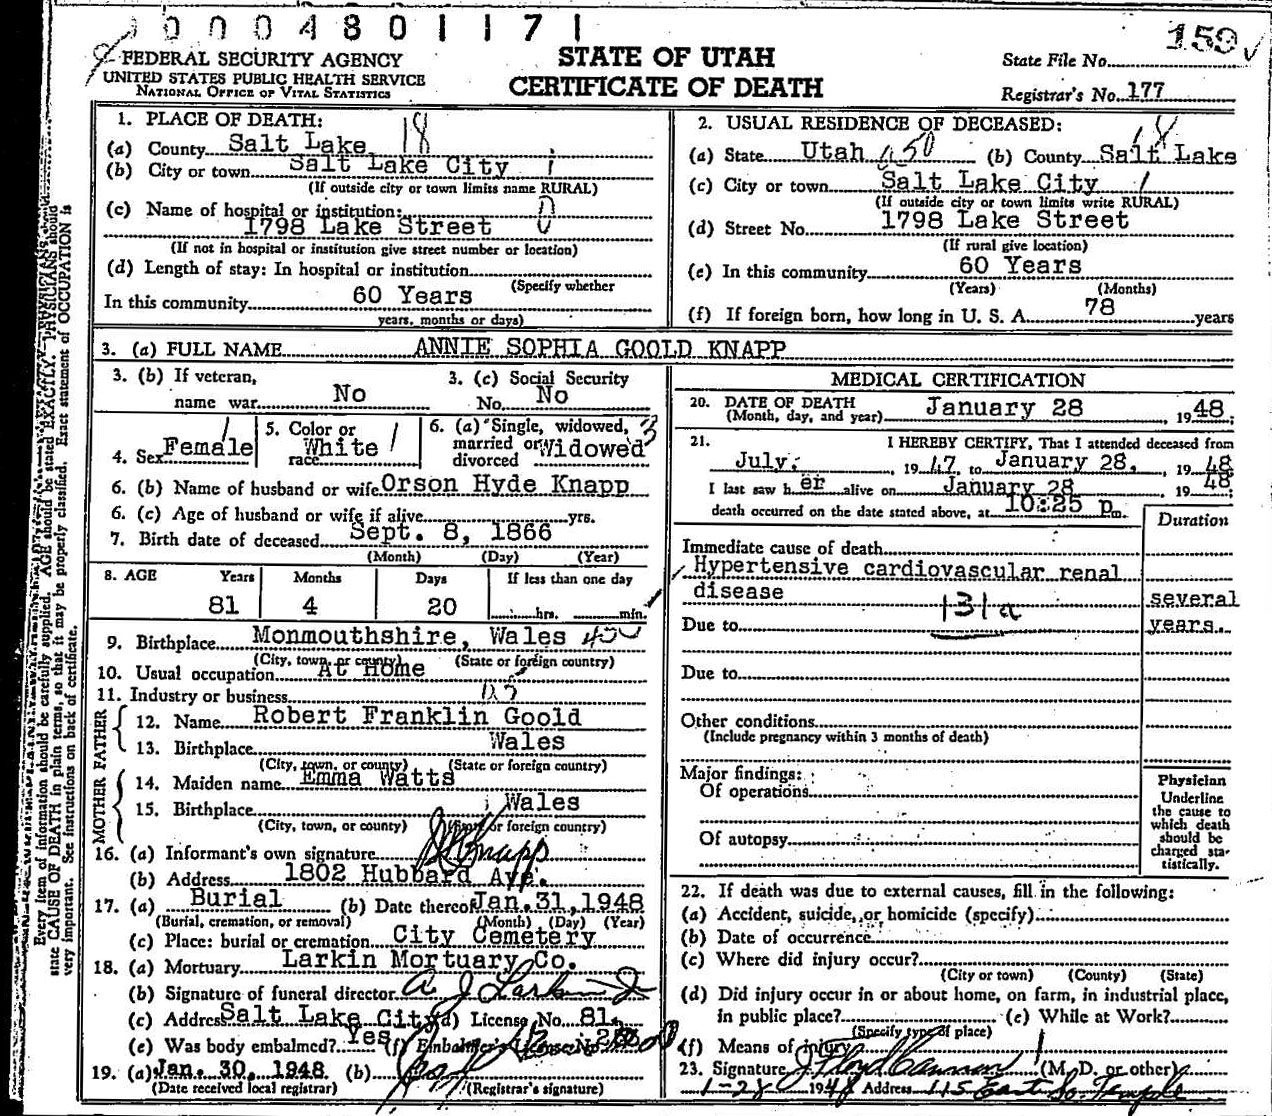 0 0 0 4 8 0 1 1 7 1
FEDERAL SECURITY AGENCY
UNITED STATES PUBLIC HEALTH SERVICE
NATIONAL OFFICE OF VITAL STATISTICS
STATE OF UTAH
CERTIFICATE OF DEATH
State File No. 159
Registrar's No. 177
Every item of information should be carefully supplied. AGE should be stated EXACTLY. PHYSICIANS should
state CAUSE OF DEATH in plain terms, so that it may be properly classified. Exact statement of OCCUPATION is
very important. See instructions on back of certificate.
1. PLACE OF DEATH: 18
(a) County Salt Lake
(b) City or town Salt Lake City 1
(If outside city or town limits name RURAL)
(c) Name of hospital or institution: 0
1798 Lake Street 0
(If not in hospital or institution give street number or location)
(d) Length of stay: In hospital or institution
(Specify whether
In this community 60 Years
years, months or days)
2. USUAL RESIDENCE OF DECEASED: 18
(a) State Utah 450 (b) County Salt Lake
(c) City or town Salt Lake City 1
(If outside city or town limits write RURAL)
(d) Street No. 1798 Lake Street
(If rural give location)
(e) In this community 60 Years
(Years) (Months)
(f) If foreign born, how long in U. S. A. 78 years
3. (a) FULL NAME ANNIE SOPHIA GOOLD KNAPP
3. (b) If veteran,
name war No
3. (c) Social Security
No. No
4. Sex Female 1
5. Color or
race White 1
6. (a) Single, widowed, 3
married or
divorced Widowed
6. (b) Name of husband or wife Orson Hyde Knapp
6. (c) Age of husband or wife if alive yrs.
7. Birth date of deceased Sept. 8, 1866
(Month) (Day) (Year)
8. AGE Years Months Days If less than one day
81 4 20 hrs. min.
9. Birthplace Monmouthshire, Wales 450
(City, town, or county) (State or foreign country)
10. Usual occupation At Home
11. Industry or business
FATHER
12. Name Robert Franklin Goold
13. Birthplace Wales
(City, town, or county) (State or foreign country)
MOTHER
14. Maiden name Emma Watts
15. Birthplace Wales
(City, town, or county) (State or foreign country)
16. (a) Informant's own signature Knapp
(b) Address 1802 Hubbard Ave.
17. (a) Burial (b) Date thereof Jan. 31, 1948
(Burial, cremation, or removal) (Month) (Day) (Year)
(c) Place: burial or cremation City Cemetery
18. (a) Mortuary Larkin Mortuary Co.
(b) Signature of funeral director A J Larkin
(c) Address Salt Lake City (d) License No. 81
(e) Was body embalmed? Yes (f) Embalmer's License No.
19. (a) Jan. 30, 1948 (b)
(Date received local registrar) (Registrar's signature)
MEDICAL CERTIFICATION
20. DATE OF DEATH
(Month, day, and year) January 28 1948;
21. I HEREBY CERTIFY, That I attended deceased from
July, 1947, to January 28, 1948
I last saw her alive on January 28 1948;
death occurred on the date stated above, at 10:25 p m.
Duration
Immediate cause of death
Hypertensive cardiovascular renal
disease several
Due to 131a years.
Due to
Other conditions
(Include pregnancy within 3 months of death)
Major findings:
Of operations
Of autopsy
Physician
Underline
the cause to
which death
should be
charged sta-
tistically.
22. If death was due to external causes, fill in the following:
(a) Accident, suicide, or homicide (specify)
(b) Date of occurrence
(c) Where did injury occur?
(City or town) (County) (State)
(d) Did injury occur in or about home, on farm, in industrial place,
in public place? (e) While at Work?
(Specify type of place)
(f) Means of injury
23. Signature J Floyd Cannon (M. D. or other)
1-28 1948 Address 115 East So. Temple